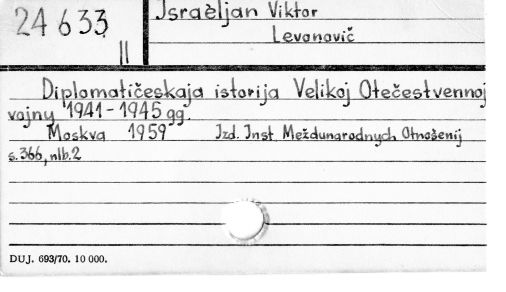 24 633
II
Jsraèljan Viktor
Levonovič
Diplomatičeskaja istorija Velikoj Otečestvennoj
vojny 1941-1945 gg.
Moskva 1959 Izd. Inst Meždunarodnych Otnošenij
s. 366, nlb. 2
DUJ. 693/70. 10 000.